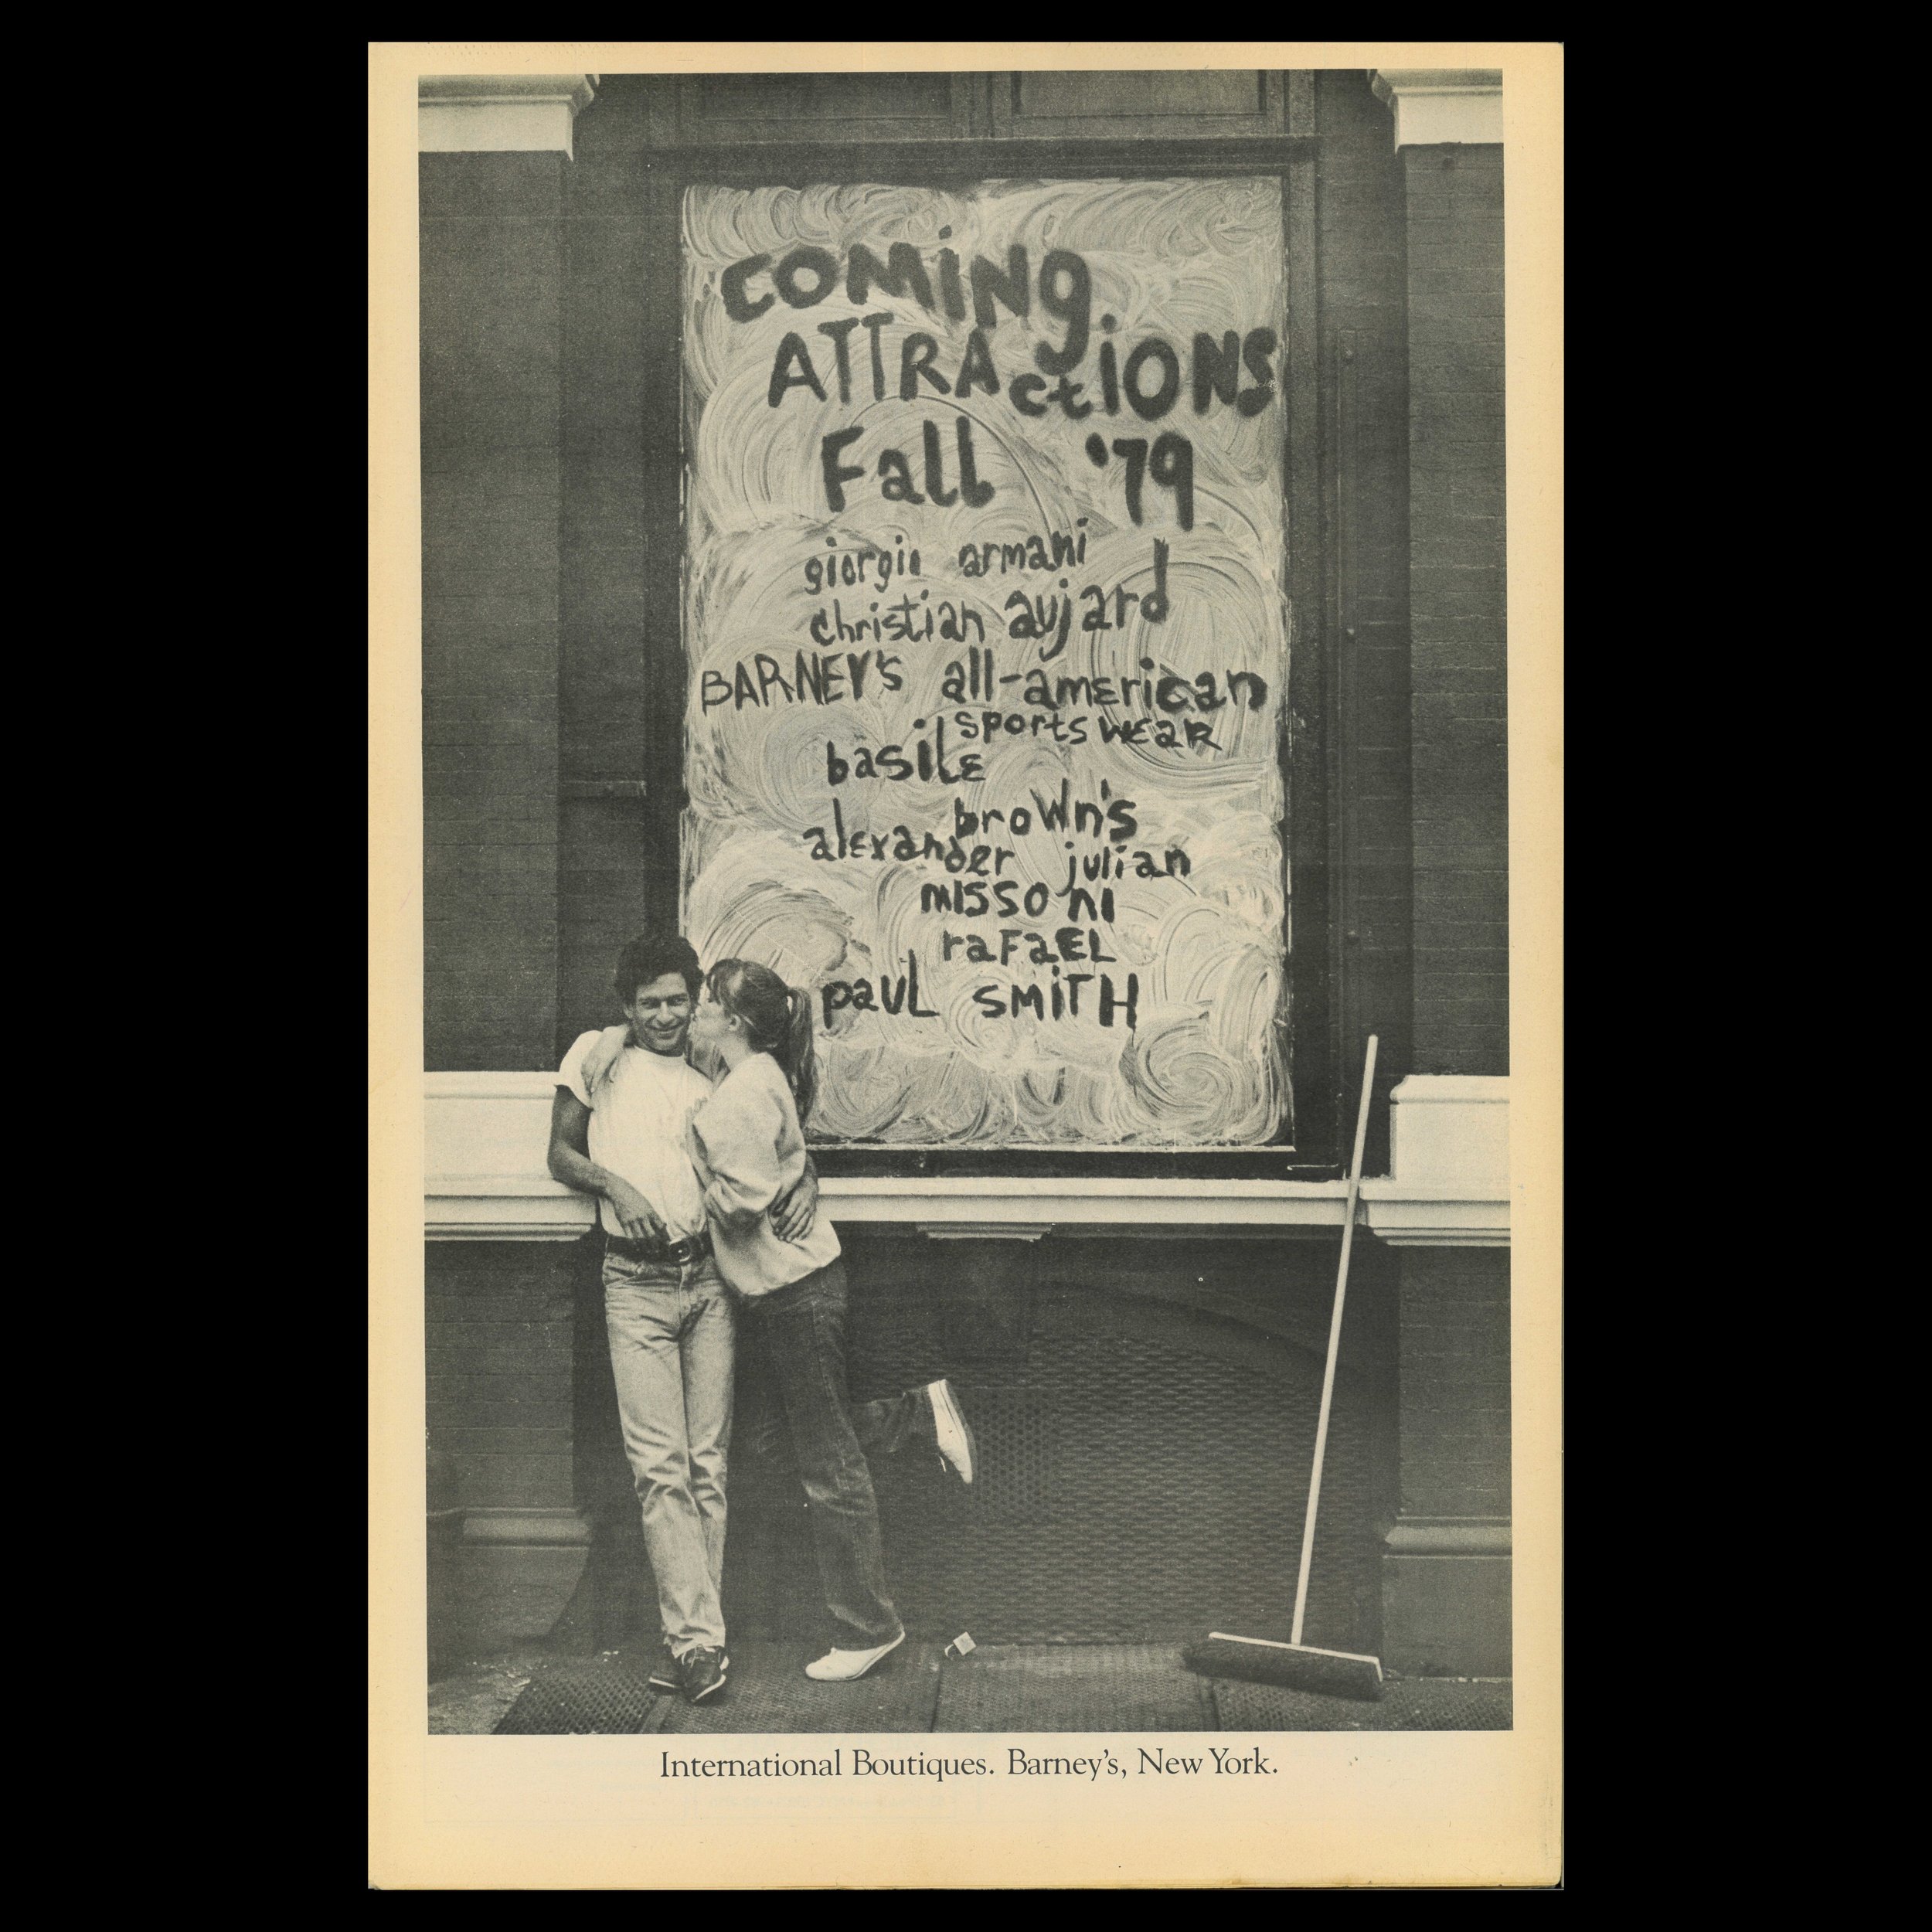 COMiNg
ATTRActiONS
Fall '79
giorgio armani
christian aujard
BARNEY'S all-american
sportswEaR
basilE
brown's
alexander julian
MISSONI
raFaEL
paUL SMiTH
International Boutiques. Barney's, New York.